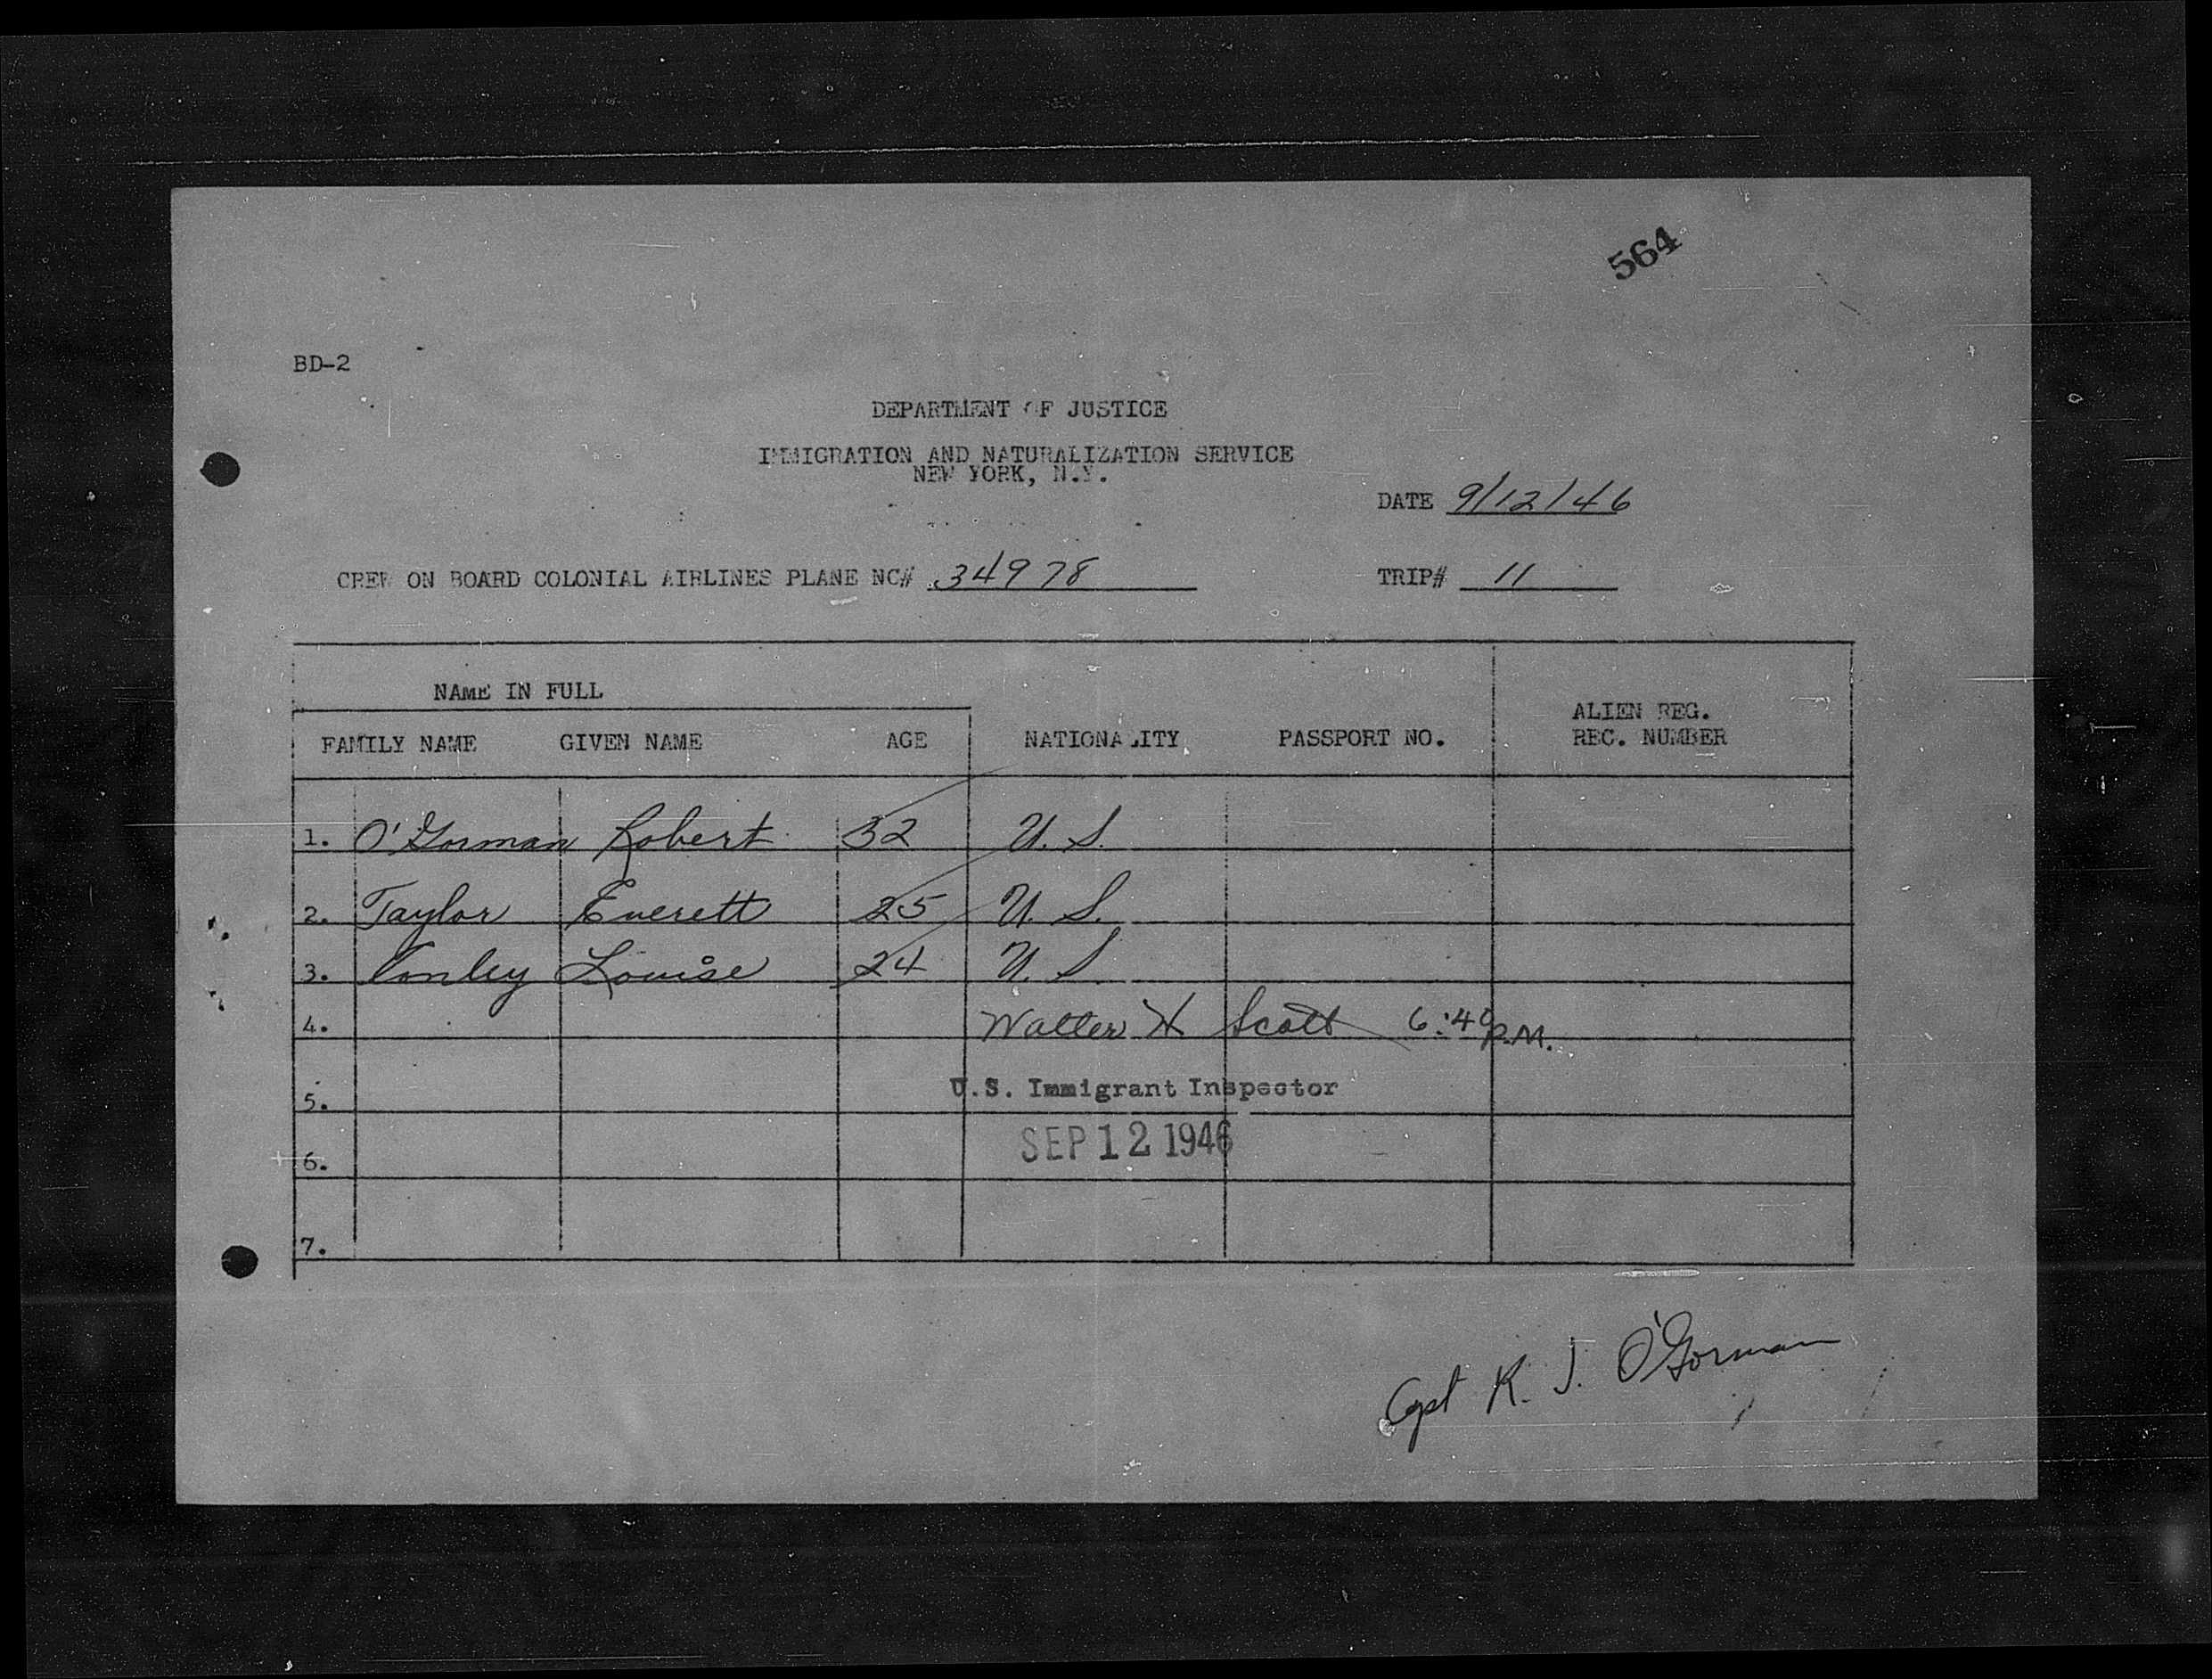 564
BD-2
DEPARTMENT OF JUSTICE
IMMIGRATION AND NATURALIZATION SERVICE
NEW YORK, N.Y.
DATE 9/12/46
CREW ON BOARD COLONIAL AIRLINES PLANE NC# 34978 TRIP# 11
NAME IN FULL
FAMILY NAME GIVEN NAME AGE NATIONALITY PASSPORT NO. ALIEN REG. REC. NUMBER
1. O'Gorman Robert 32 U.S.
2. Taylor Everett 25 U.S.
3. Conley Louise 24 U.S.
4. Walter H Scott 6:40 P.M.
5. U.S. Immigrant Inspector
6. SEP 12 1946
7.
Capt R. J. O'Gorman